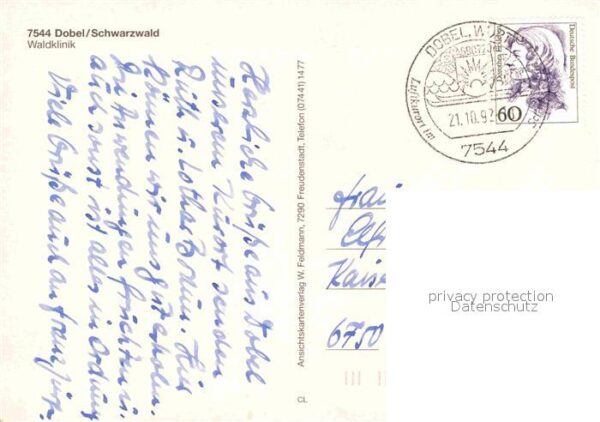 7544 Dobel/Schwarzwald
Waldklinik
Herzliche Grüße aus Dobel
unserem Kurort senden
Ruth u. Lothar Braun. Hier
können wir uns gut erholen.
Die Anwendungen
auch sonst ist alles in Ordnung
Viele Grüße auch an Franz
Ansichtskartenverlag W. Feldmann, 7290 Freudenstadt, Telefon (07441) 1477
CL
DOBEL, WÜRTT
Luftkurort im
21.10.92
7544
Deutsche Bundespost
60
Frau
Kaise
6750
privacy protection
Datenschutz